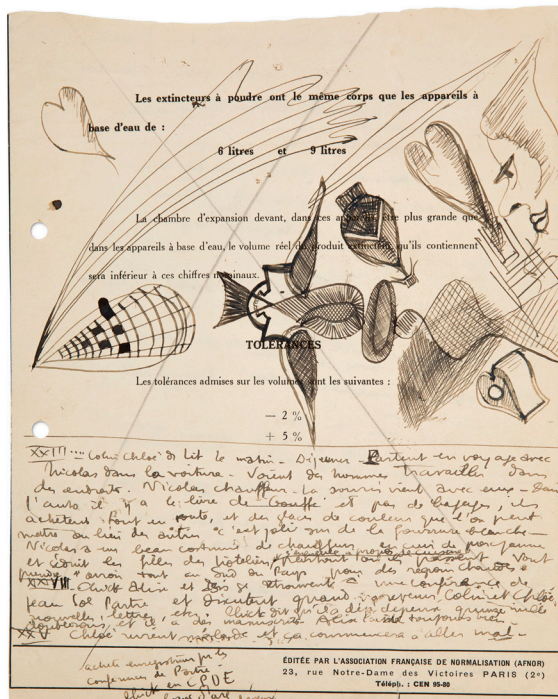 Les extincteurs à poudre ont le même corps que les appareils à
base d'eau de :
6 litres et 9 litres
La chambre d'expansion devant, dans ces appareils, être plus grande que
dans les appareils à base d'eau, le volume réel du produit extincteur qu'ils contiennent
sera inférieur à ces chiffres nominaux.
TOLERANCES
Les tolérances admises sur les volumes sont les suivantes :
— 2 %
+ 5 %
XXIII Colin Chloé Lit le matin. Déjeuner. Partent en voyage avec
Nicolas dans la voiture. Voient des hommes travailler dans
des endroits. Nicolas chauffeur. La souris vient avec eux. Dans
l'auto il y a le livre de Gouffé et pas de bagages, ils
achètent tout en route, et des glaces de couleurs que l'on peut
mettre au lieu des autres c'est joli sur de la fourrure blanche
Nicolas a un beau costume de chauffeur en cuir de
et les filles des hôteliers
tout au sud du Pays pour des régions chaudes
Chick Alise et se trouvent à une conférence de
Jean Sol Partre et discutent quand Colin et Chloé
nouvelle, lettre, etc. Chick dit qu'il a déjà dépensé quinze mille
doublezons, et il a des manuscrits Alise l'aime toujours bien
XXV Chloé revient malade et ça commencera à aller mal.
achète enregistrer
conférences de Partre
Chick
ÉDITÉE PAR L'ASSOCIATION FRANÇAISE DE NORMALISATION (AFNOR)
23, rue Notre-Dame des Victoires PARIS (2ᵉ)
Téléph. : CEN 95-80